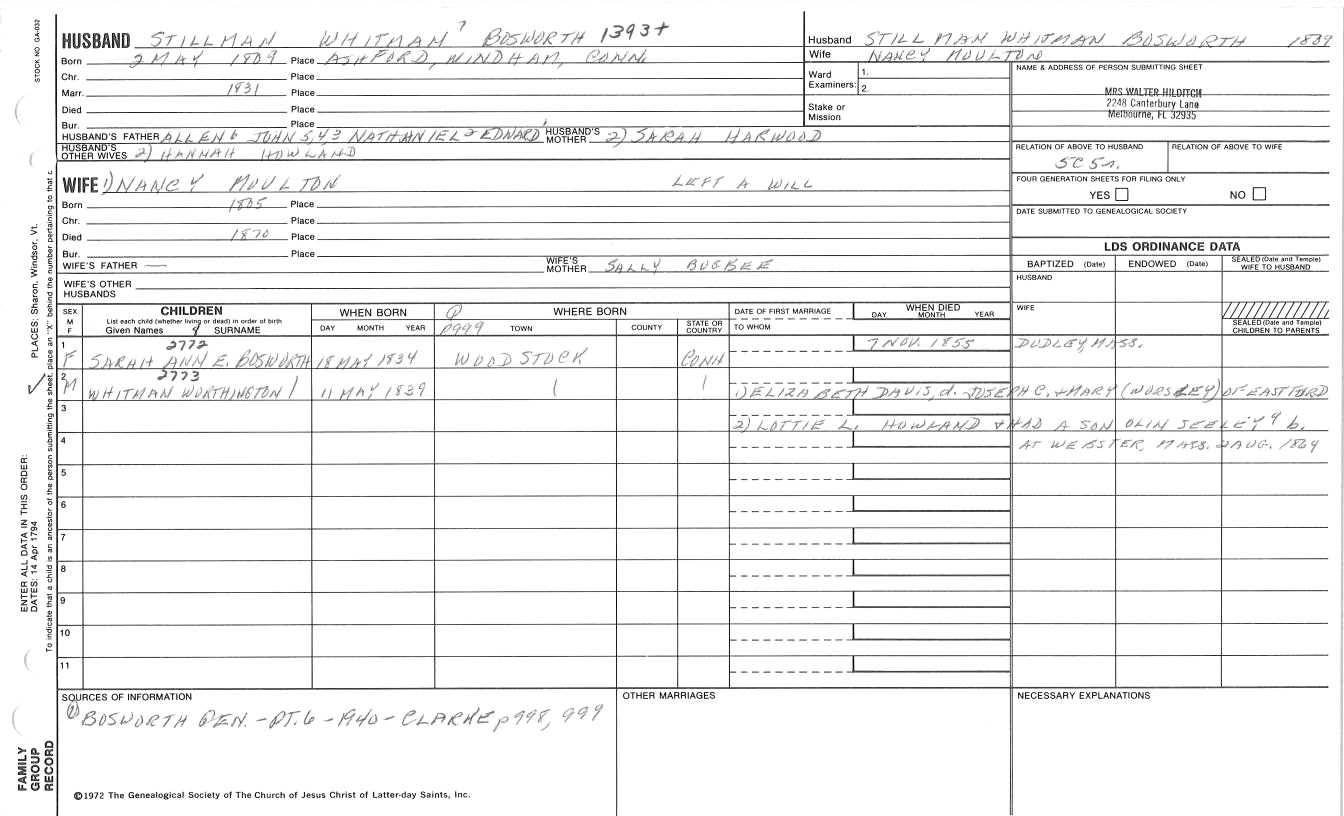 STOCK NO GA-032
HUSBAND STILLMAN WHITMAN 7 BOSWORTH 1393+
Born 2 MAY 1809 Place ASHFORD, WINDHAM, CONN.
Chr. Place
Marr. 1931 Place
Died Place
Bur. Place
HUSBAND'S FATHER ALLEN 6 JOHN 5,43 NATHANIEL 2 EDWARD 1 HUSBAND'S MOTHER 2) SARAH HARWOOD
HUSBAND'S OTHER WIVES 2) HANNAH HOWLAND
WIFE 1) NANCY MOULTON LEFT A WILL
Born 1805 Place
Chr. Place
Died 1870 Place
Bur. Place
WIFE'S FATHER — WIFE'S MOTHER SALLY BUGBEE
WIFE'S OTHER HUSBANDS
Husband STILLMAN WHITMAN BOSWORTH 1809
Wife NANCY MOULTON
Ward Examiners: 1. 2.
Stake or Mission
NAME & ADDRESS OF PERSON SUBMITTING SHEET
MRS WALTER HILDITCH
2248 Canterbury Lane
Melbourne, FL 32935
RELATION OF ABOVE TO HUSBAND RELATION OF ABOVE TO WIFE
5C 5r.
FOUR GENERATION SHEETS FOR FILING ONLY
YES NO
DATE SUBMITTED TO GENEALOGICAL SOCIETY
LDS ORDINANCE DATA
BAPTIZED (Date) ENDOWED (Date) SEALED (Date and Temple) WIFE TO HUSBAND
HUSBAND
WIFE
SEALED (Date and Temple) CHILDREN TO PARENTS
SEX M F CHILDREN WHEN BORN WHERE BORN DATE OF FIRST MARRIAGE WHEN DIED
List each child (whether living or dead) in order of birth
Given Names 8 SURNAME DAY MONTH YEAR p999 TOWN COUNTY STATE OR COUNTRY TO WHOM DAY MONTH YEAR
2772
1 F SARAH ANN E. BOSWORTH 18 MAY 1834 WOODSTOCK CONN 7 NOV. 1855 DUDLEY, MASS.
2773
2 M WHITMAN WORTHINGTON 11 MAY 1839 1) ELIZABETH DAVIS, d. JOSEPH C. + MARY (WORSLEY) OF EASTFORD
3
2) LOTTIE L. HOWLAND + HAD A SON OLIN SEELEY 9 b.
4 AT WEBSTER, MASS. 2 AUG. 1864
5
6
7
8
9
10
11
SOURCES OF INFORMATION OTHER MARRIAGES NECESSARY EXPLANATIONS
BOSWORTH GEN. - PT. 6 - 1940 - CLARKE p998, 999
©1972 The Genealogical Society of The Church of Jesus Christ of Latter-day Saints, Inc.
FAMILY GROUP RECORD
ENTER ALL DATA IN THIS ORDER:
DATES: 14 Apr 1794
PLACES: Sharon, Windsor, Vt.
To indicate that a child is an ancestor of the person submitting the sheet, place an "X" behind the number pertaining to that c